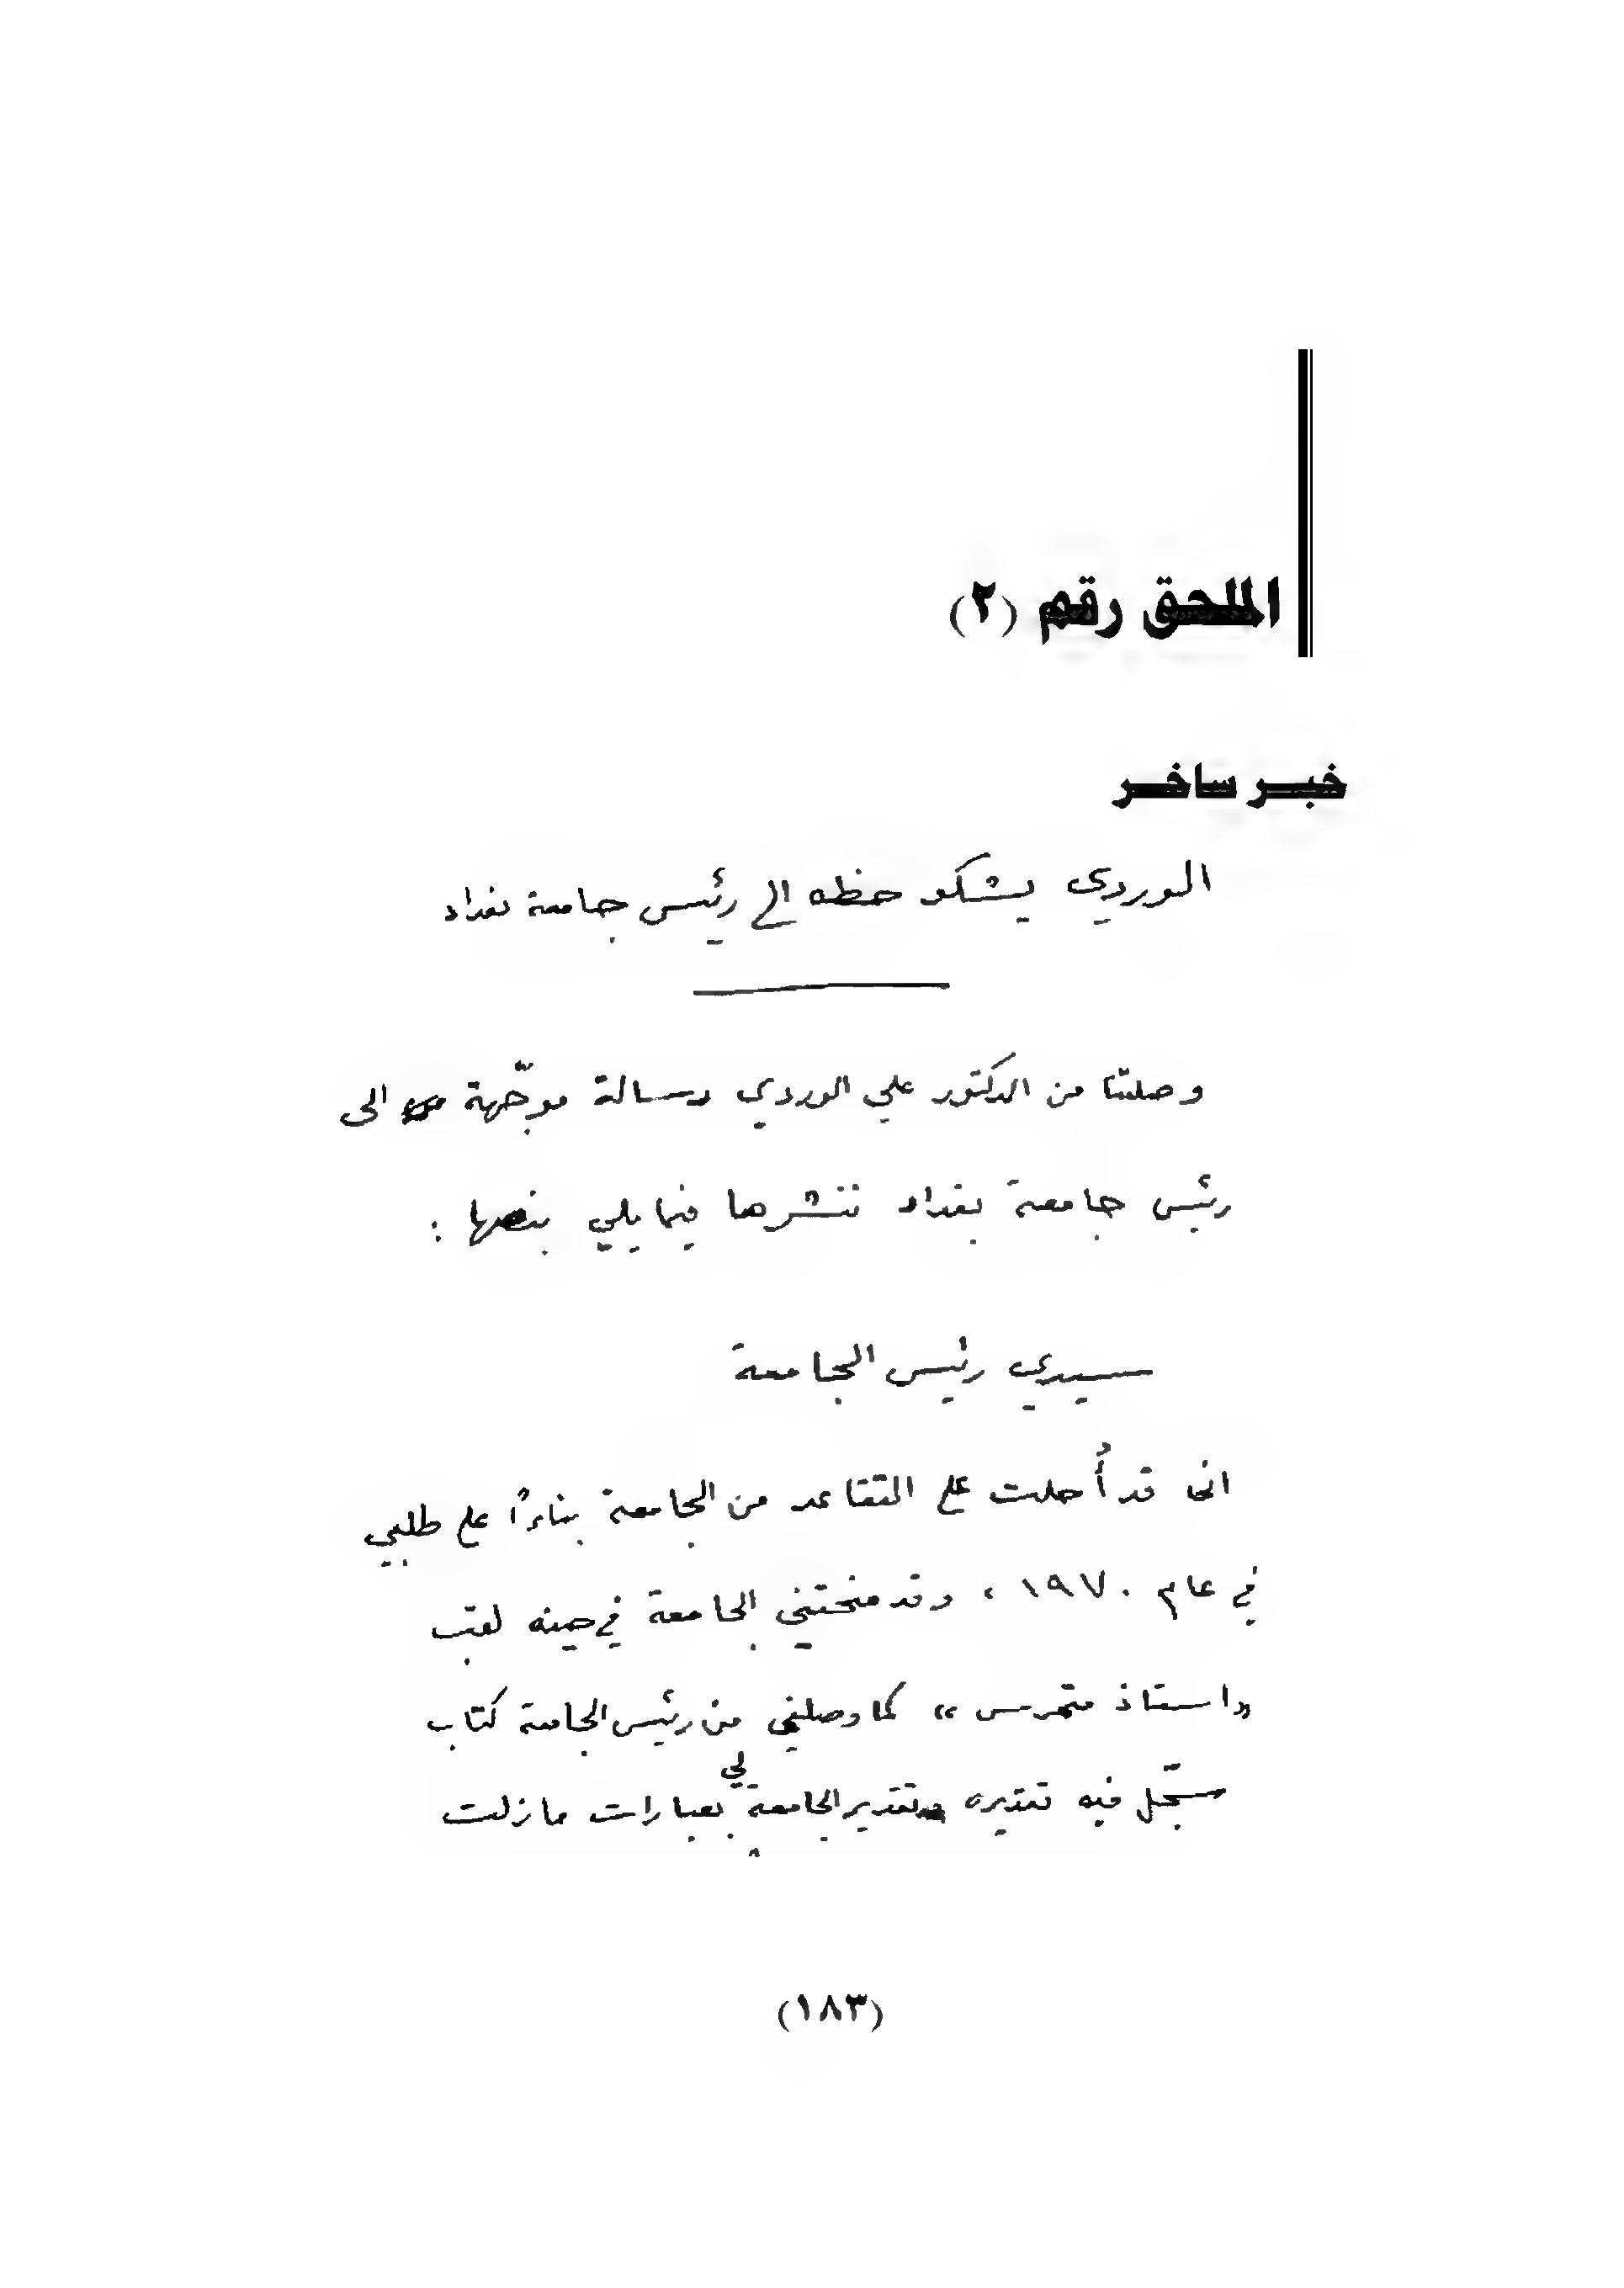 الملحق رقم (٢)
خبر ساخر
الوردي يشكو حظه الى رئيس جامعة بغداد
وصلتنا من الدكتور علي الوردي رسالة موجّهة الى
رئيس جامعة بغداد ننشرها فيما يلي بنصها :
سيدي رئيس الجامعة
اني قد أُحلت على التقاعد من الجامعة بناءاً على طلبي
في عام ١٩٧٠ ، وقد منحتني الجامعة في حينه لقب
«استاذ متمرس» كما وصلني من رئيس الجامعة كتاب
سجّل فيه تقديره وتقدير الجامعة لي بعبارات ما زلت
(١٨٣)